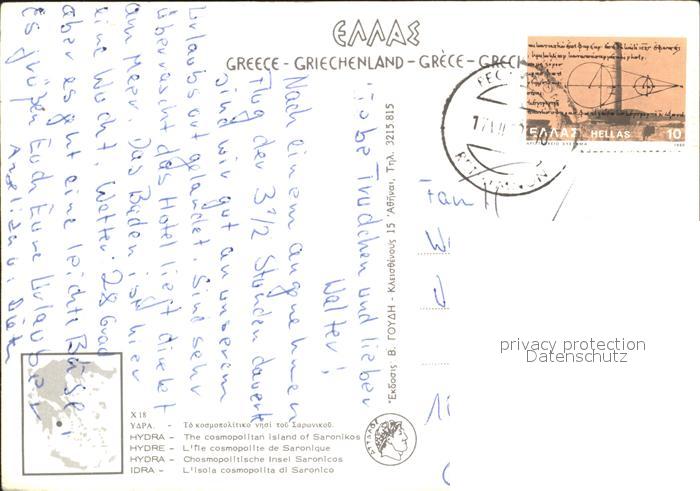 ΕΛΛΑΣ
GREECE - GRIECHENLAND - GRÈCE - GRECI
ΕΛΛΑΣ HELLAS 10
Liebe Trudchen und lieber
Walter!
Nach einem angenehmen
Flug der 3 1/2 Stunden dauerte
sind wir gut an unserem
Urlaubsort gelandet. Sind sehr
überrascht das Hotel liegt direkt
am Meer. Das Baden ist hier
eine Wucht. Wetter 28 Grad
aber es geht eine leichte Brise.
Es grüßen Euch Eure Urlauber
"Εκδοσις Β. ΓΟΥΔΗ - Κλεισθένους 15 'Αθῆναι, Τηλ. 3215.815
Frau
privacy protection
Datenschutz
X 18
ΥΔΡΑ. - Τὸ κοσμοπολίτικο νησὶ τοῦ Σαρωνικοῦ.
HYDRA - The cosmopolitan island of Saronikos
HYDRE - L'île cosmopolite de Saronique
HYDRA - Chosmopolitische Insel Saronicos
IDRA - L'isola cosmopolita di Saronico